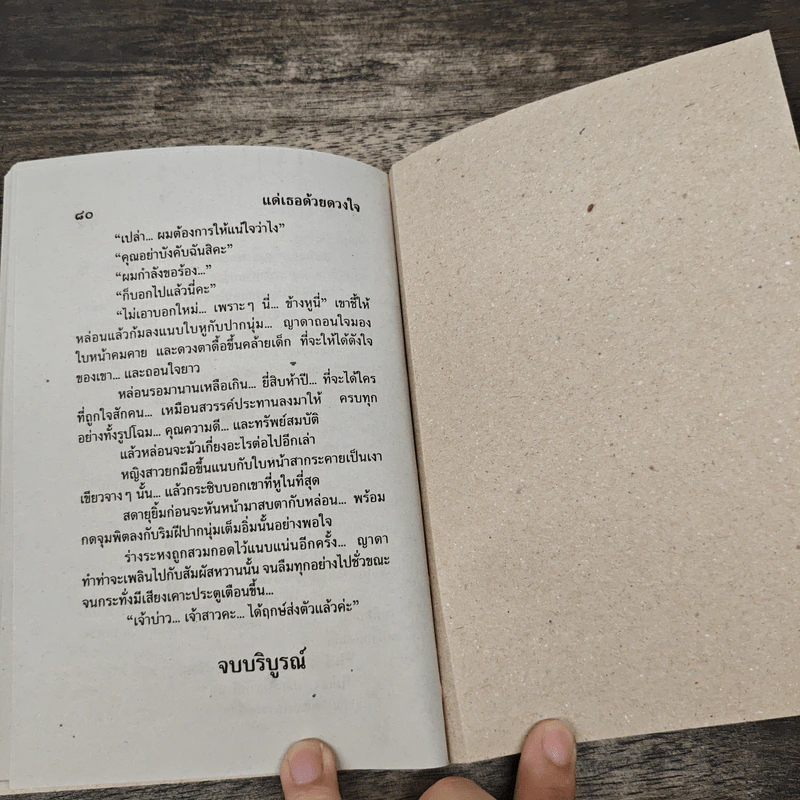 ๘๐
แด่เธอด้วยดวงใจ
“เปล่า... ผมต้องการให้แน่ใจว่าไง”
“คุณอย่าบังคับฉันสิคะ”
“ผมกำลังขอร้อง...”
“ก็บอกไปแล้วนี่คะ”
“ไม่เอาบอกใหม่... เพราะๆ นี่... ข้างหูนี่” เขาชี้ให้
หล่อนแล้วก้มลงแนบใบหูกับปากนุ่ม... ญาดาถอนใจมอง
ใบหน้าคมคาย และดวงตาดื้อขึ้นคล้ายเด็ก ที่จะให้ได้ดังใจ
ของเขา... และถอนใจยาว
หล่อนรอมานานเหลือเกิน... ยี่สิบห้าปี... ที่จะได้ใคร
ที่ถูกใจสักคน... เหมือนสวรรค์ประทานลงมาให้ ครบทุก
อย่างทั้งรูปโฉม... คุณความดี... และทรัพย์สมบัติ
แล้วหล่อนจะมัวเกี่ยงอะไรต่อไปอีกเล่า
หญิงสาวยกมือขึ้นแนบกับใบหน้าสากระคายเป็นเงา
เขียวจางๆ นั้น... แล้วกระซิบบอกเขาที่หูในที่สุด
สดายุยิ้มก่อนจะหันหน้ามาสบตากับหล่อน... พร้อม
กดจุมพิตลงกับริมฝีปากนุ่มเต็มอิ่มนั้นอย่างพอใจ
ร่างระหงถูกสวมกอดไว้แนบแน่นอีกครั้ง... ญาดา
ทำท่าจะเพลินไปกับสัมผัสหวานนั้น จนลืมทุกอย่างไปชั่วขณะ
จนกระทั่งมีเสียงเคาะประตูเตือนขึ้น...
“เจ้าบ่าว... เจ้าสาวคะ... ได้ฤกษ์ส่งตัวแล้วค่ะ”
จบบริบูรณ์